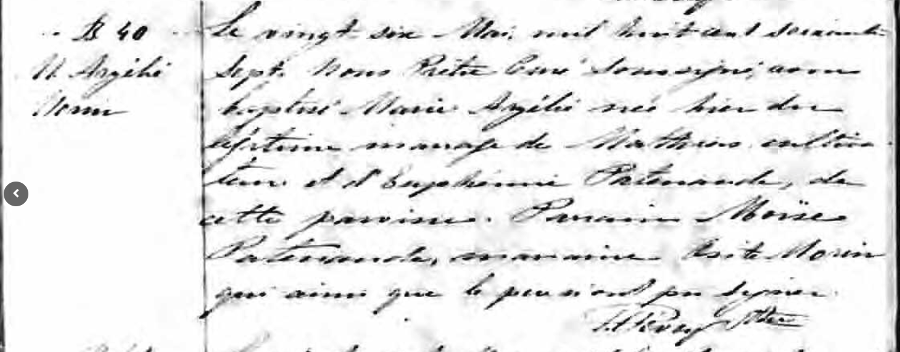 B 40
M Azélie
Morin
Le vingt six Mai mil huit cent soixante
sept. Nous Prêtre Curé Soussigné avons
baptisé Marie Azélie née hier du
légitime mariage de Mathias cultiva-
teur et d'Euphémie Patenaude, de
cette paroisse. Parrain Moïse
Patenaude, marraine Morin
qui ainsi que le père n'ont pu signer.
Ptre